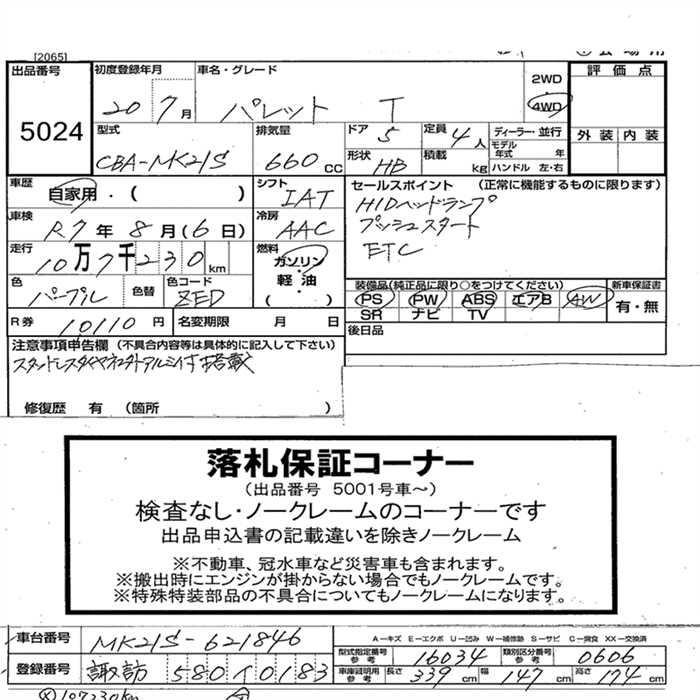 [2065]
出品番号 初度登録年月 車名・グレード 2WD 評価点
5024 20 7月 パレット T 4WD
型式 排気量 ドア 5 定員 4人 ディーラー・並行 外装 内装
CBA-MK21S 660cc 形状 HB 積載 kg モデル年式 年
ハンドル 左・右
車歴 自家用・( ) シフト IAT セールスポイント (正常に機能するものに限ります)
HIDヘッドランプ
車検 R7年8月(6日) 冷房 AAC プッシュスタート
ETC
走行 10万7千230km 燃料 ガソリン・軽油・( )
色 パープル 色替 色コード ZED 装備品(純正品に限り○をつけてください) 新車保証書
PS PW ABS エアB AW 有・無
SR ナビ TV
R券 10110円 名変期限 月 日 後日品
注意事項申告欄 (不具合内容等は具体的に記入して下さい)
修復歴 有 (箇所 )
落札保証コーナー
(出品番号 5001号車~)
検査なし・ノークレームのコーナーです
出品申込書の記載違いを除きノークレーム
※不動車、冠水車など災害車も含まれます。
※搬出時にエンジンが掛からない場合でもノークレームです。
※特殊特装部品の不具合についてもノークレームになります。
A-キズ E-エクボ U-凹み W-補修跡 S-サビ C-腐食 XX-交換済
車台番号 MK21S-621846 型式指定番号 参考 16034 類別区分番号 参考 0606
登録番号 諏訪 580 ん 0183 車庫証明用 参考 長さ 339cm 幅 147cm 高さ 174cm
107230km